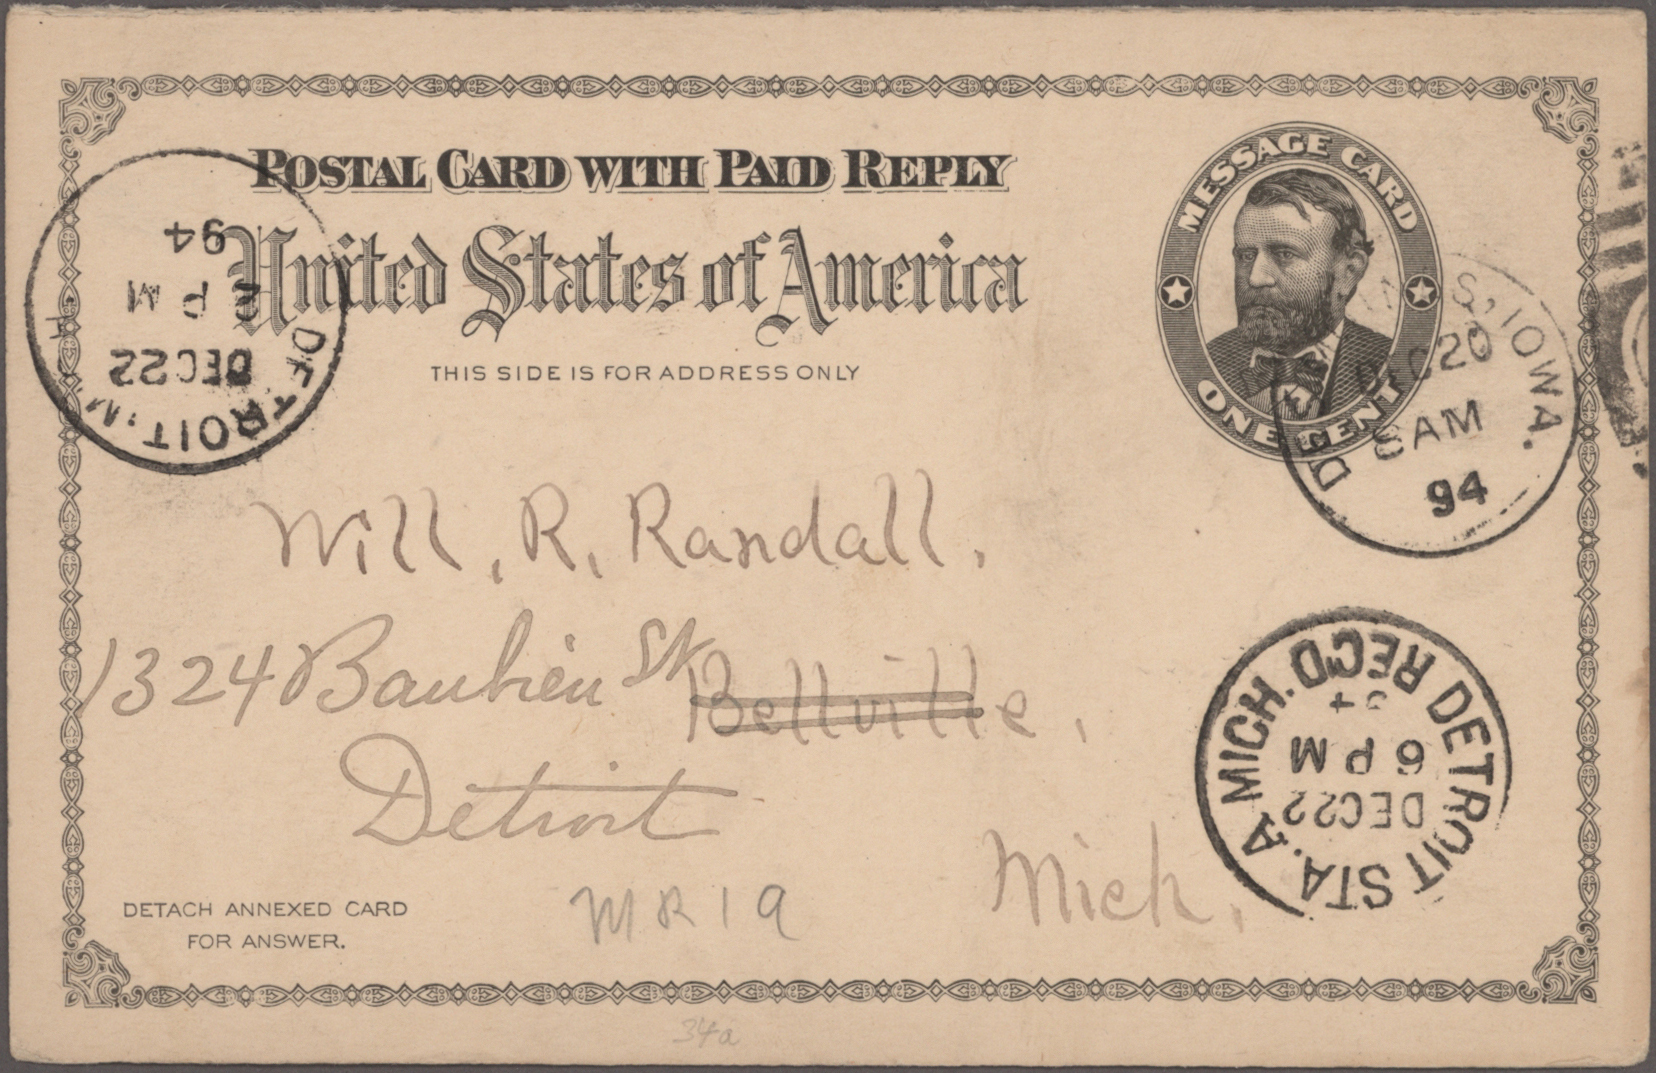 POSTAL CARD WITH PAID REPLY
United States of America
THIS SIDE IS FOR ADDRESS ONLY
MESSAGE CARD
ONE CENT
S, IOWA.
DEC 20
8 AM
94
DETROIT. MICH
DEC 22
2 PM
94
Will. R. Randall.
1324 Baubien St Bellville.
Detroit
Mich.
DETROIT STA. A MICH. REC'D
DEC 22
6 PM
DETACH ANNEXED CARD
FOR ANSWER.
MR19
34a